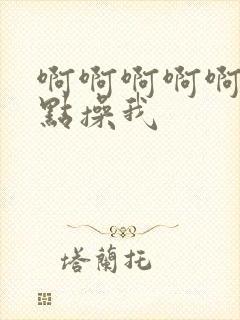 啊啊啊啊啊
點操我
塔蘭托